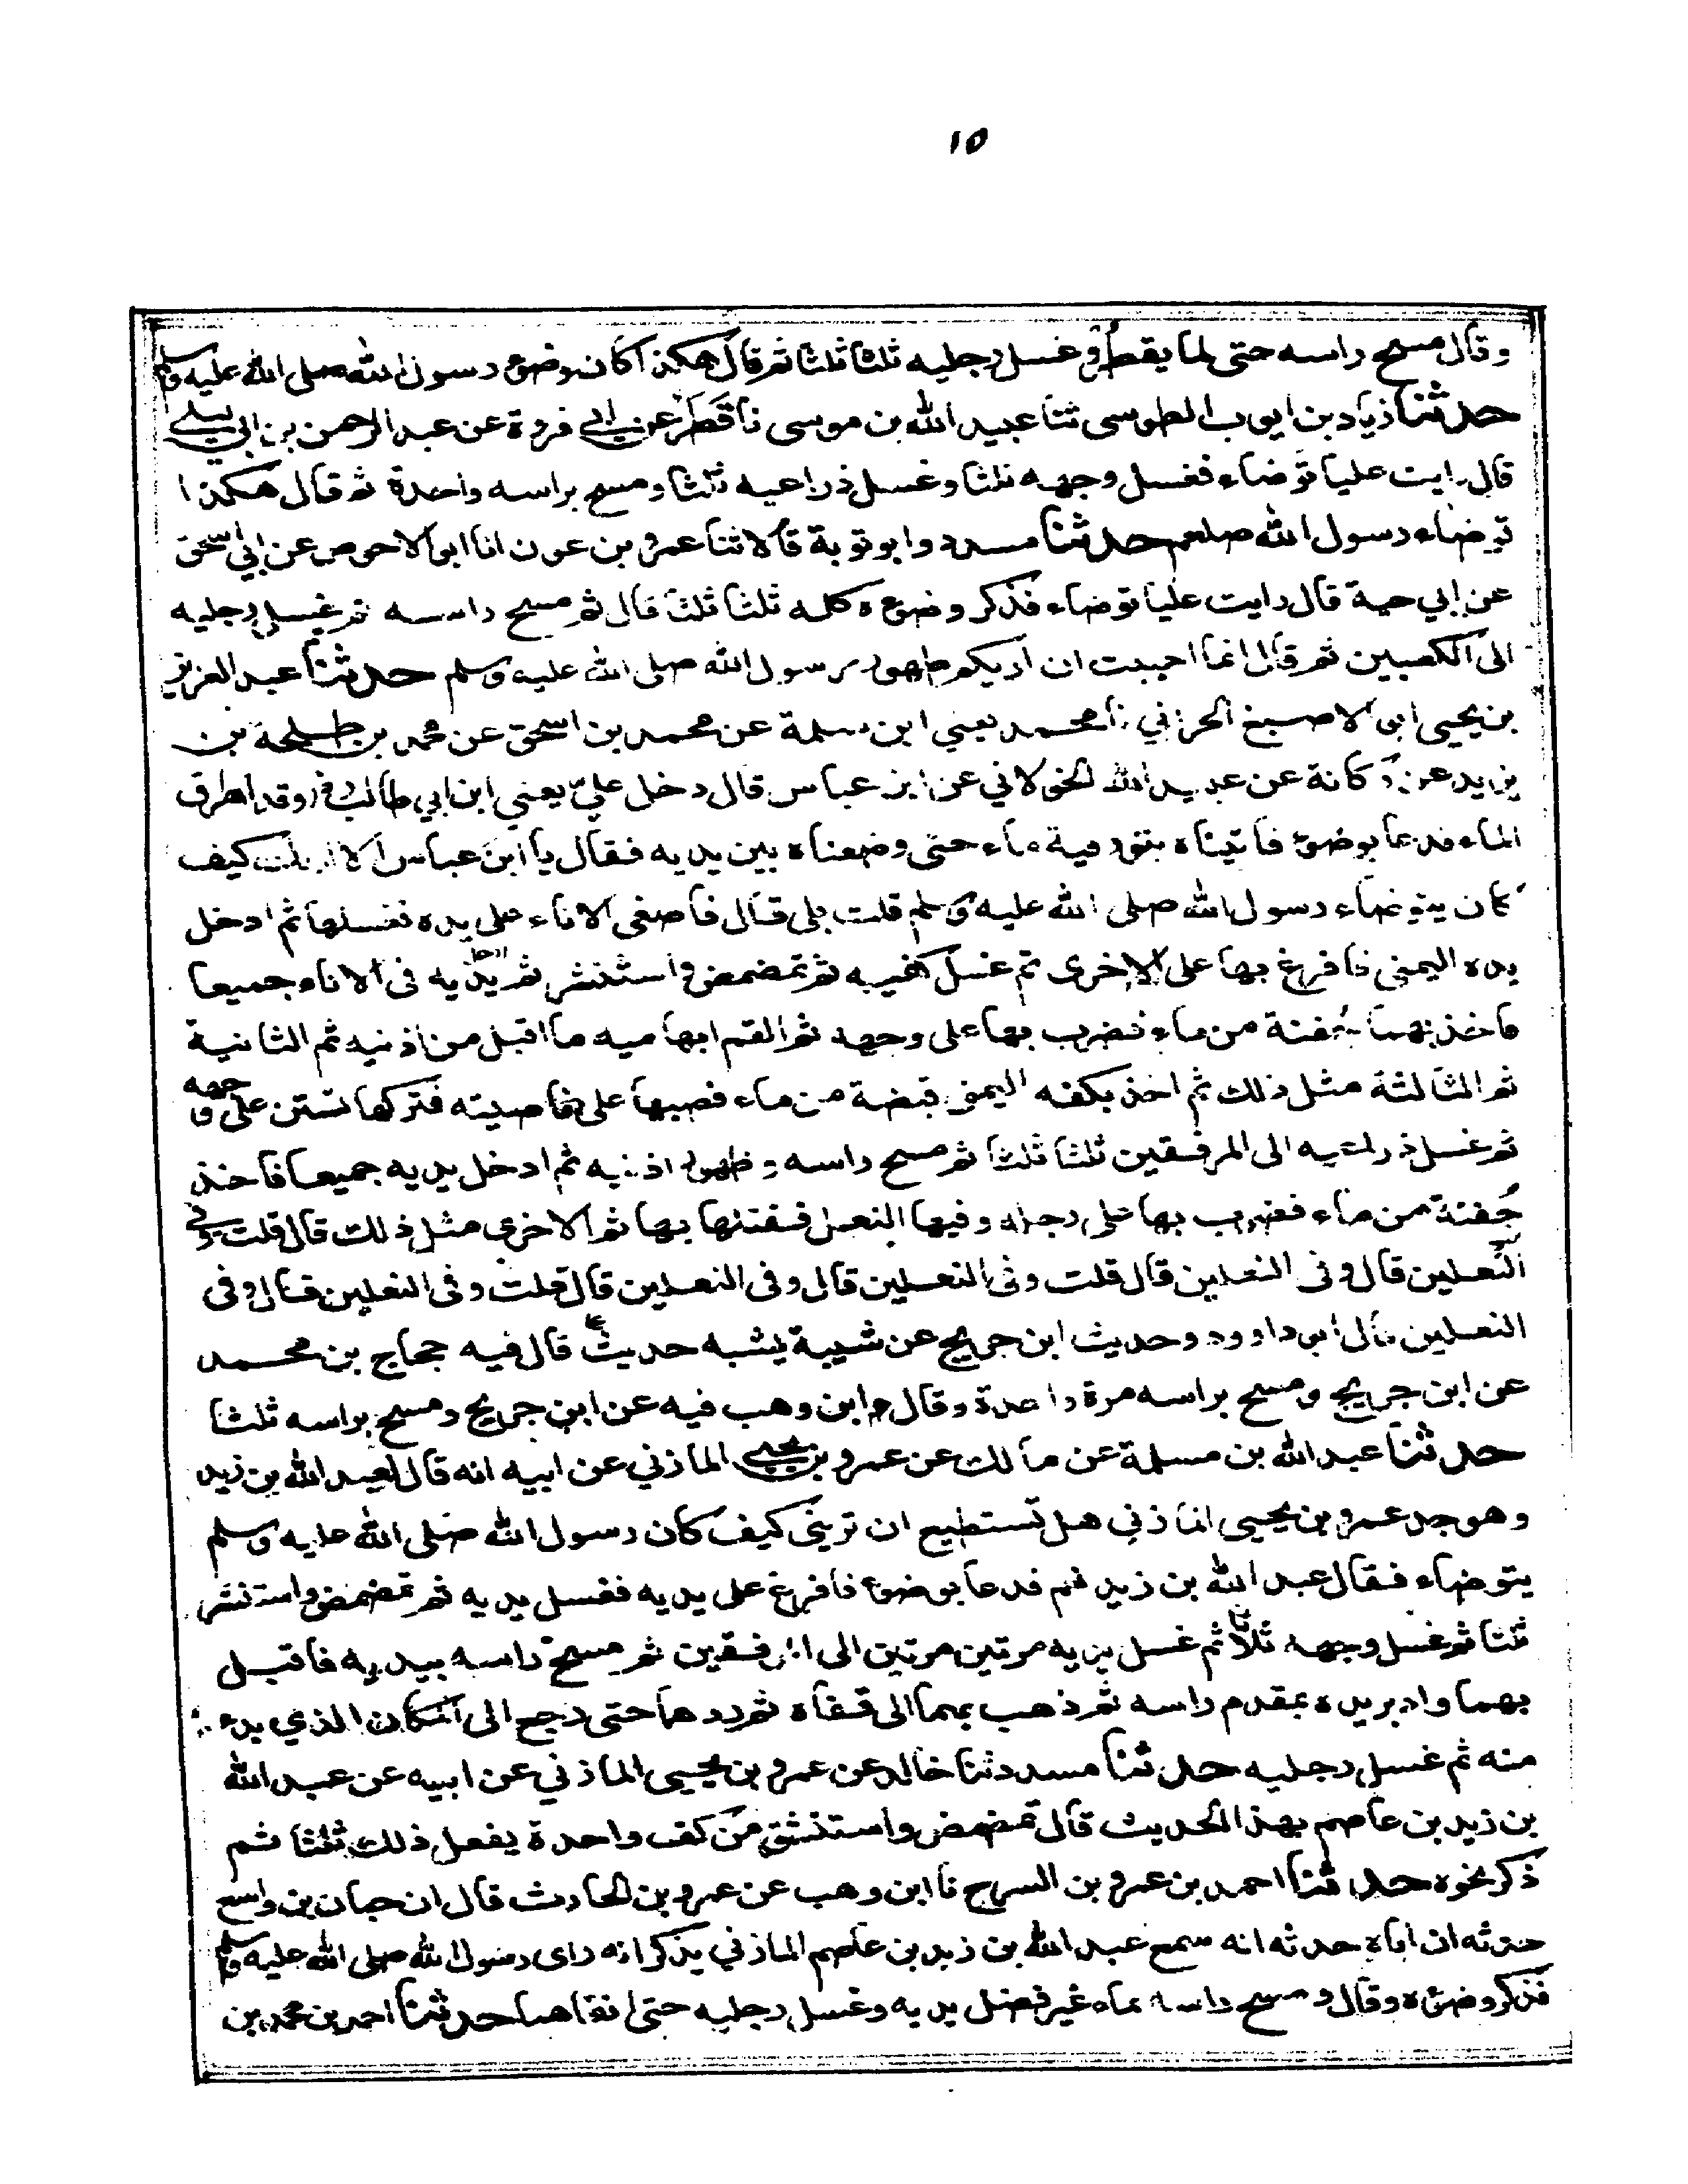 ١٥
وقال مسح راسه حتى لما يقطر وغسل رجليه ثلثا ثلثا ثم قال هكذا كان وضوء رسول الله صلى الله عليه وسلم
حدثنا زياد بن ايوب الطوسى ثنا عبيد الله بن موسى نا فطر عن ابي فروة عن عبد الرحمن بن ابي ليلى
قال رايت عليا توضاء فغسل وجهه ثلثا وغسل ذراعيه ثلثا ومسح براسه واحدة ثم قال هكذا
توضاء رسول الله صلعم حدثنا مسدد وابو توبة قالا ثنا عمرو بن عون انا ابو الاحوص عن ابي اسحق
عن ابي حية قال رايت عليا توضاء فذكر وضوءه كله ثلثا ثلثا قال ثم مسح راسه ثم غسل رجليه
الى الكعبين ثم قال انما احببت ان اريكم طهور رسول الله صلى الله عليه وسلم حدثنا عبد العزيز
بن يحيى ابو الاصبغ الحراني نا محمد يعني ابن سلمة عن محمد بن اسحق عن محمد بن طلحة بن
يزيد عن ركانة عن عبيد الله الخولاني عن ابن عباس قال دخل علي يعني ابن ابي طالب وقد اهرق
الماء فدعا بوضوء فاتيناه بتور فيه ماء حتى وضعناه بين يديه فقال يا ابن عباس الا اريك كيف
كان يتوضاء رسول الله صلى الله عليه وسلم قلت بلى قال فاصغى الاناء على يده فغسلها ثم ادخل
يده اليمنى فافرغ بها على الاخرى ثم غسل كفيه ثم تمضمض واستنثر ثم ادخل يديه فى الاناء جميعا
فاخذ بهما حفنة من ماء فضرب بها على وجهه ثم القم ابهاميه ما اقبل من اذنيه ثم الثانية
ثم الثالثة مثل ذلك ثم اخذ بكفه اليمنى قبضة من ماء فصبها على ناصيته فتركها تستن على وجهه
ثم غسل ذراعيه الى المرفقين ثلثا ثلثا ثم مسح راسه وظهور اذنيه ثم ادخل يديه جميعا فاخذ
حفنة من ماء فضرب بها على رجله وفيها النعل ففتلها بها ثم الاخرى مثل ذلك قال قلت وفي
النعلين قال وفى النعلين قال قلت وفى النعلين قال وفى النعلين قال قلت وفى النعلين قال وفى
النعلين قال ابو داوود وحديث ابن جريج عن شيبة يشبه حديث قال فيه حجاج بن محمد
عن ابن جريج ومسح براسه مرة واحدة وقال ابن وهب فيه عن ابن جريج ومسح براسه ثلثا
حدثنا عبد الله بن مسلمة عن مالك عن عمرو بن يحيى المازني عن ابيه انه قال لعبد الله بن زيد
وهو جد عمرو بن يحيى المازني هل تستطيع ان تريني كيف كان رسول الله صلى الله عليه وسلم
يتوضاء فقال عبد الله بن زيد نعم فدعا بوضوء فافرغ على يديه فغسل يديه ثم تمضمض واستنثر
ثلثا ثم غسل وجهه ثلاثا ثم غسل يديه مرتين مرتين الى المرفقين ثم مسح راسه بيديه فاقبل
بهما وادبر بده بمقدم راسه ثم ذهب بهما الى قفاه ثم ردهما حتى رجع الى المكان الذي بدء
منه ثم غسل رجليه حدثنا مسدد ثنا خالد عن عمرو بن يحيى المازني عن ابيه عن عبد الله
بن زيد بن عاصم بهذا الحديث قال تمضمض واستنشق من كف واحدة يفعل ذلك ثلثا ثم
ذكر نحوه حدثنا احمد بن عمرو بن السرح نا ابن وهب عن عمرو بن الحارث قال ان حبان بن واسع
حدثه ان اباه حدثه انه سمع عبد الله بن زيد بن عاصم المازني يذكر انه راى رسول الله صلى الله عليه وسلم
فذكر وضوءه وقال ومسح راسه بماء غير فضل يديه وغسل رجليه حتى انقاهما حدثنا احمد بن محمد بن